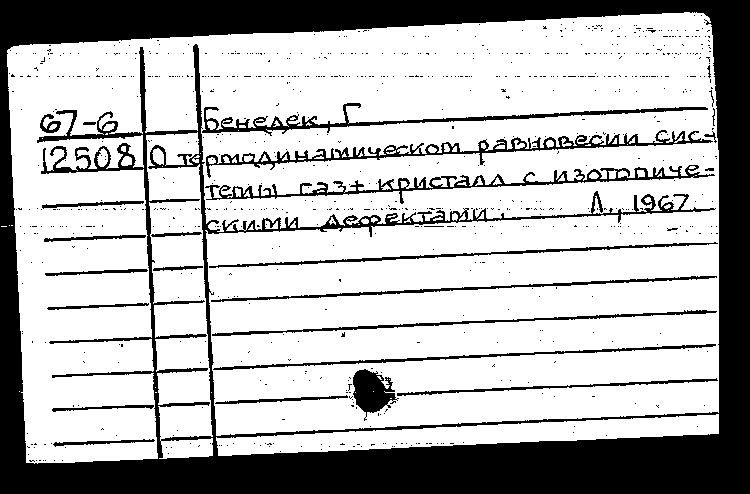 67-6 Бенедек, Г
12508 О термодинамическом равновесии сис-
темы газ+ кристалл с изотопиче-
скими дефектами. Л., 1967.